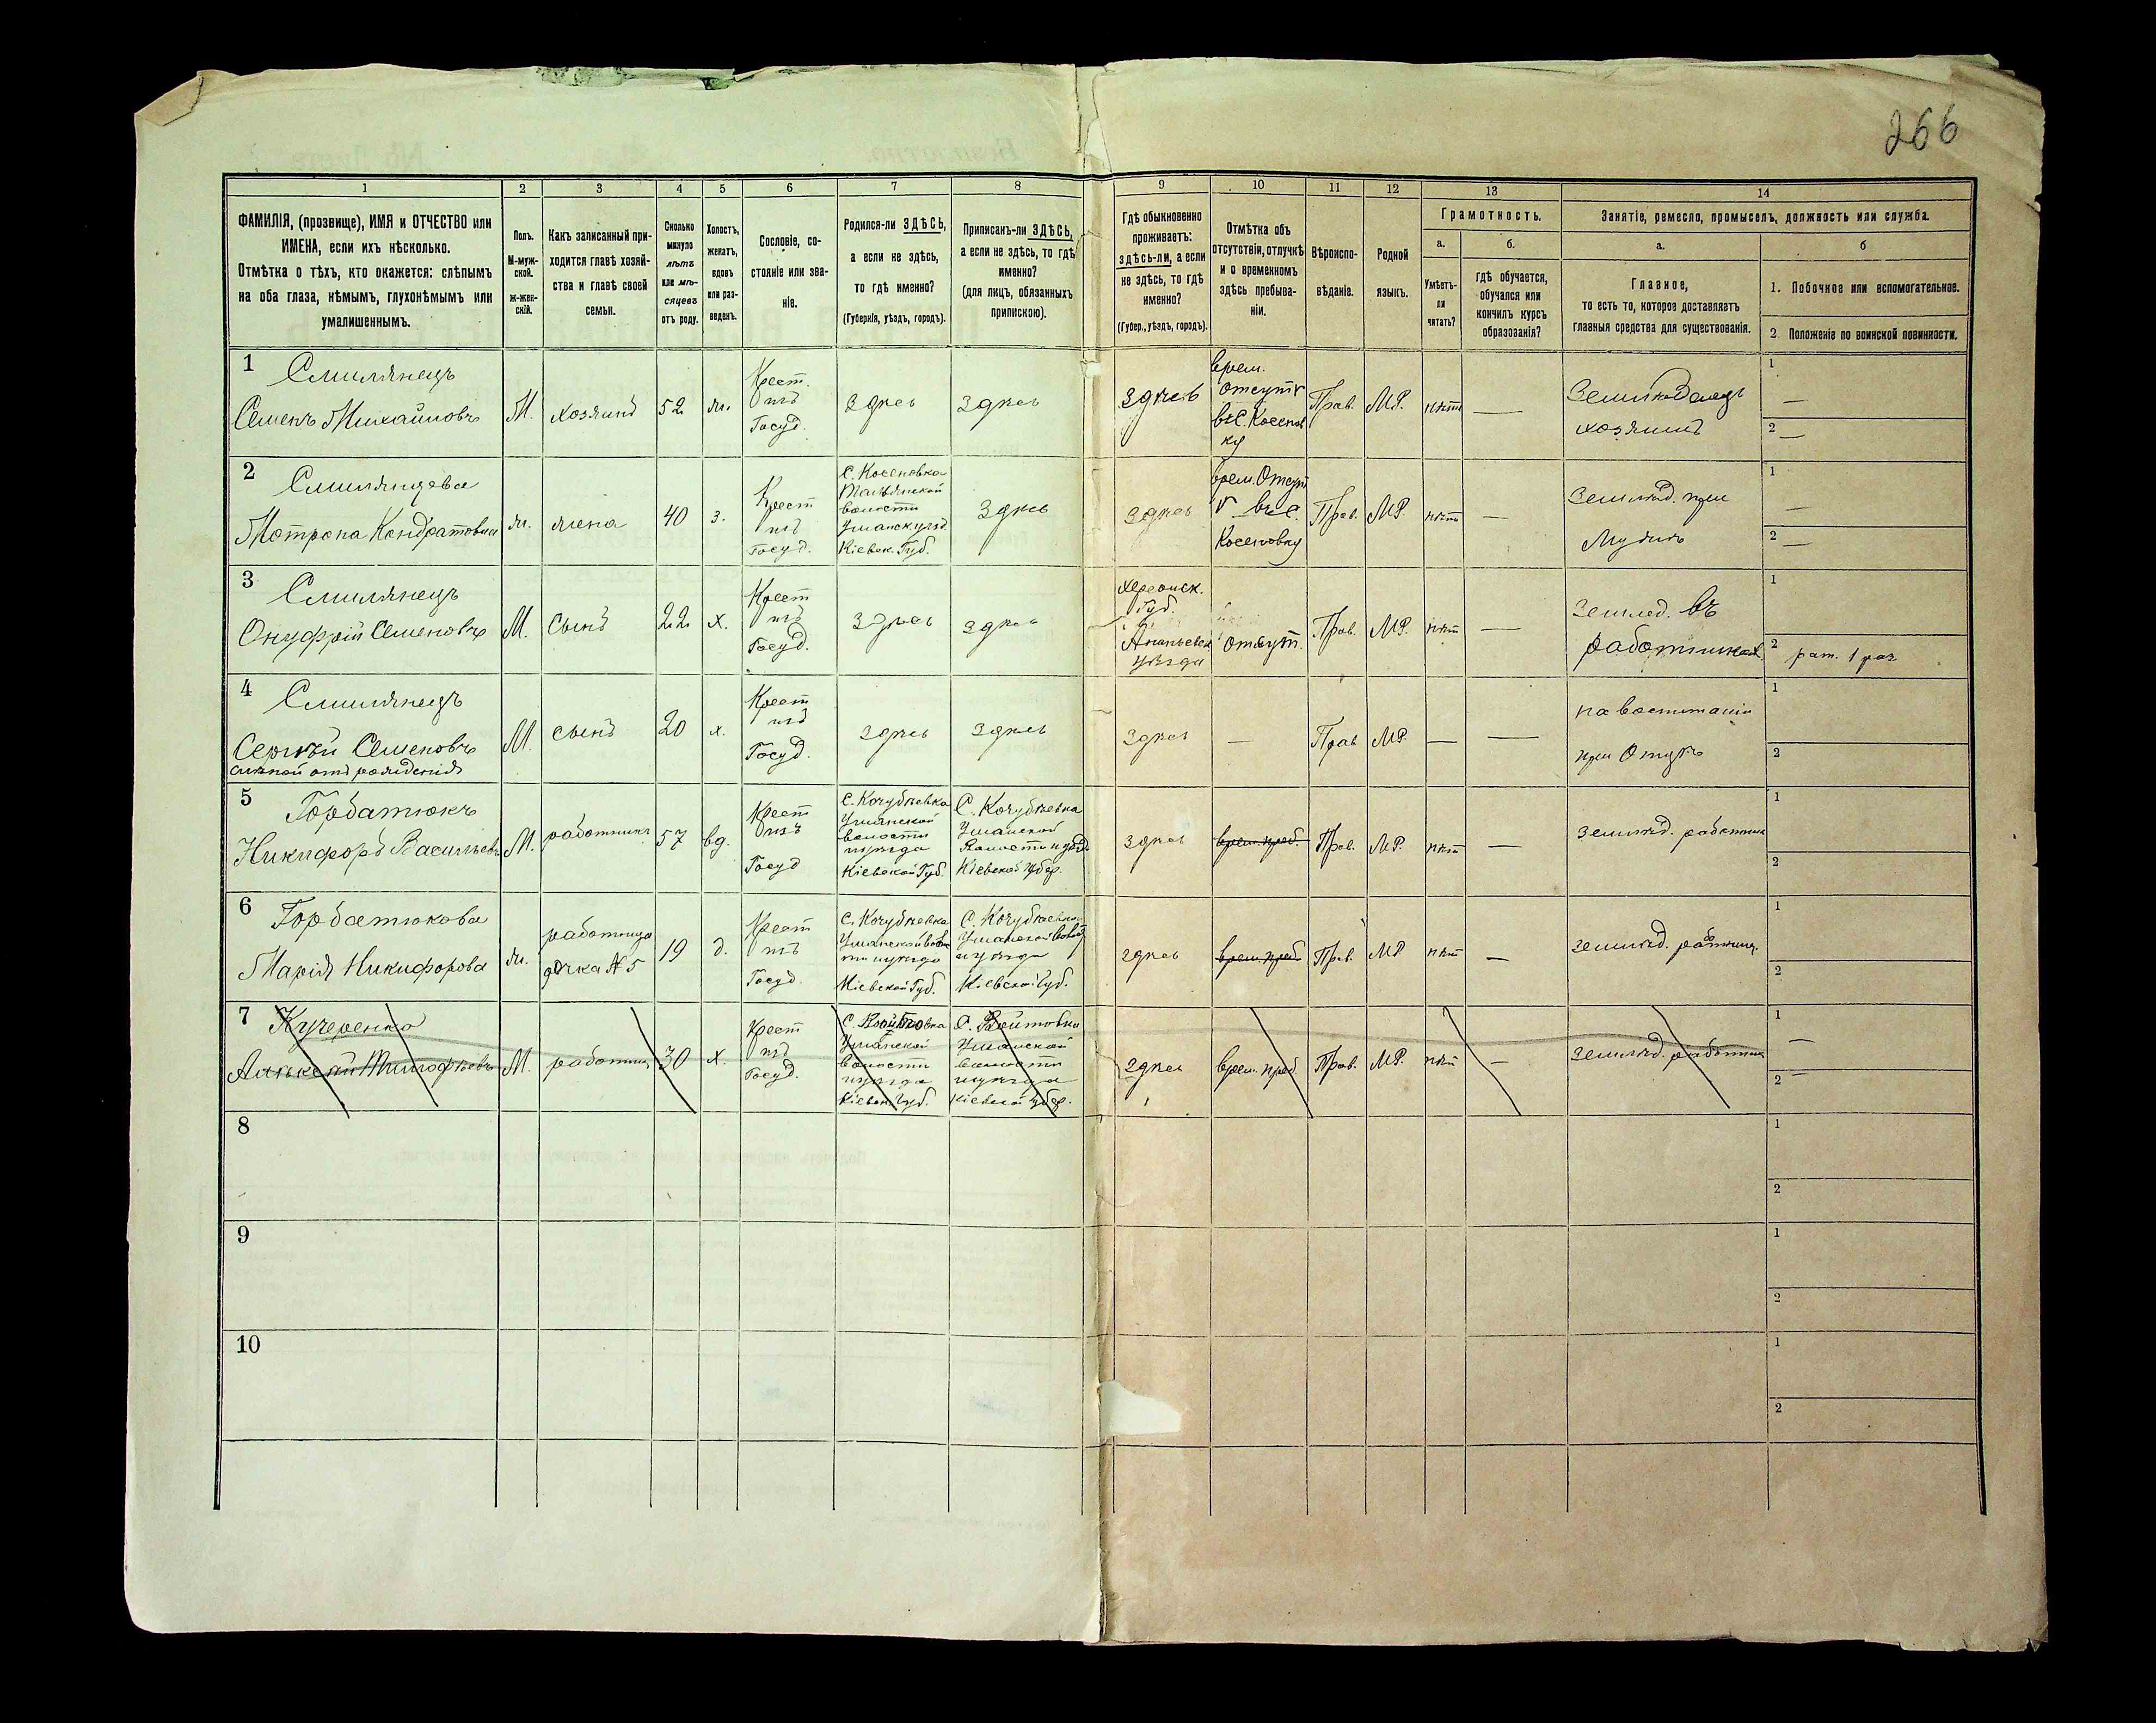 266
1 2 3 4 5 6 7 8 9 10 11 12 13 14
ФАМИЛІЯ, (прозвище), ИМЯ и ОТЧЕСТВО или
ИМЕНА, если ихъ нѣсколько.
Отмѣтка о тѣхъ, кто окажется: слѣпымъ
на оба глаза, нѣмымъ, глухонѣмымъ или
умалишеннымъ.
Полъ.
М-муж-
ской.
ж-жен-
скій.
Какъ записанный при-
ходится главѣ хозяй-
ства и главѣ своей
семьи.
Сколько
минуло
лѣтъ
или мѣ-
сяцевъ
отъ роду.
Холостъ,
женатъ,
вдовъ
или раз-
веденъ.
Сословіе, со-
стояніе или зва-
ніе.
Родился-ли ЗДѢСЬ,
а если не здѣсь,
то гдѣ именно?
(Губернія, уѣздъ, городъ).
Приписанъ-ли ЗДѢСЬ,
а если не здѣсь, то гдѣ
именно?
(для лицъ, обязанныхъ
припискою).
Гдѣ обыкновенно
проживаетъ:
здѣсь-ли, а если
не здѣсь, то гдѣ
именно?
(Губер., уѣздъ, городъ).
Отмѣтка объ
отсутствіи, отлучкѣ
и о временномъ
здѣсь пребыва-
ніи.
Вѣроиспо-
вѣданіе.
Родной
языкъ.
Грамотность.
а.
Умѣетъ-
ли
читать?
б.
гдѣ обучается,
обучался или
кончилъ курсъ
образованія?
Занятіе, ремесло, промыселъ, должность или служба.
а.
Главное,
то есть то, которое доставляетъ
главныя средства для существованія.
б
1. Побочное или вспомогательное.
2 Положеніе по воинской повинности.
1
Смилянецъ
Семенъ Михайловъ
М.
хозяинъ
52
ж.
Крест.
изъ
Госуд.
Здѣсь
Здѣсь
Здѣсь
врем.
Отсутт
въ С. Косенов
ку
Прав.
МР.
нѣтъ
—
Земледелецъ
хозяинъ
1
—
2
—
2
Смилянцева
Мотрона Кондратовна
ж.
жена
40
з.
Крест
изъ
Госуд.
С. Косеновка
Тальянской
волости
Уманск. уѣзд
Кіевск. Губ.
Здѣсь
Здѣсь
врем. Отсут
въ С.
Косеновку
Прав.
МР.
нѣтъ
—
Землѣд. при
Мужѣ
1
—
2
—
3
Смилянецъ
Онуфрій Семеновъ
М.
Сынъ
22
х.
Крест
изъ
Госуд.
Здѣсь
Здѣсь
Херсонск.
Губ.
Ананьевск
уѣзда
Отсут.
Прав.
МР.
нѣт
—
Землед. въ
работникахъ
1
2
рат. 1 раз
4
Смилянецъ
Сергѣй Семеновъ
слѣпой отъ рожденія
М.
сынъ
20
х.
Крест
изъ
Госуд.
Здѣсь
Здѣсь
Здѣсь
—
Прав
МР.
—
—
на воспитаніи
при Отцѣ
1
2
5
Горбатюкъ
Никифоръ Васильевъ
М.
работникъ
57
вд.
Крест
изъ
Госуд
С. Кочубѣевка
Уманской
волости
и уѣзда
Кіевской Губ.
С. Кочубѣевка
Уманской
Волости и уѣзд.
Кіевской Губер.
Здѣсь
врем. преб.
Прав.
МР.
нѣт
—
Землѣд. работник
1
2
6
Горбатюкова
Марія Никифорова
ж.
работница
дочка № 5
19
д.
Крест
изъ
Госуд
С. Кочубѣевка
Уманской воло
сти и уѣзда
Кіевской Губ.
С. Кочубѣевка
Уманской Волос
и уѣзда
Кіевской Губ.
Здѣсь
врем. преб
Прав.
МР
нѣт
—
Землѣд. работниц.
1
2
7
Кучеренко
Алексѣй Тимофѣевъ
М.
работник
30
х.
Крест
изъ
Госуд.
С. Войтовка
Уманской
волости
и уѣзда
Кіевск. Губ.
С. Войтовка
Уманской
волости
и уѣзда
Кіевской Губер.
Здѣсь
врем. преб
Прав.
МР.
нѣт
—
Землѣд. работник
1
—
2
—
8
1
2
9
1
2
10
1
2